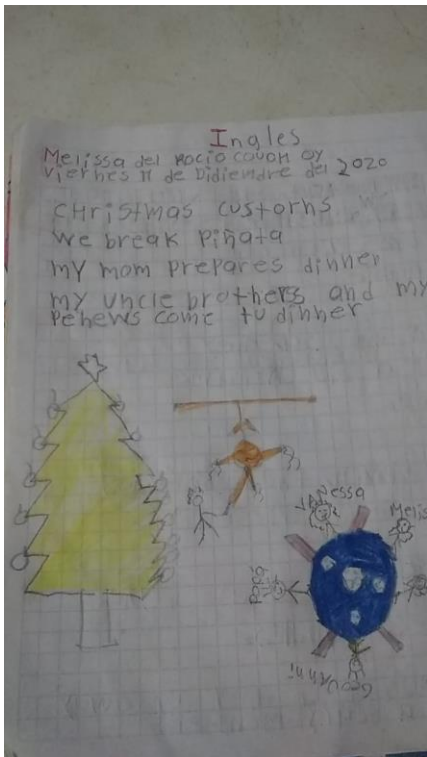 Ingles
Melissa del Rocio Couoh Oy
Viernes 11 de Didiembre del 2020
CHristmas custorns
We break Piñata
my mom prepares dinner
my uncle brothers and my
Pehews come tu dinner
Nessa
Melis
Papá
Geovanni